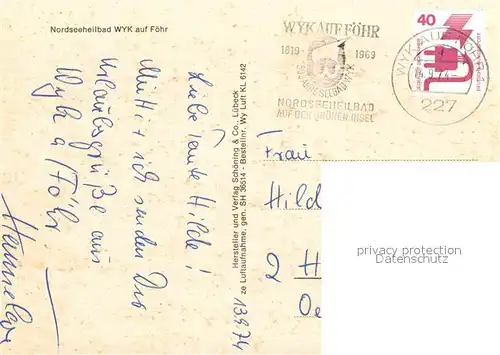 Nordseeheilbad WYK auf Föhr
WYK AUF FÖHR
1819 1969
150 JAHRE SEEBAD WYK
NORDSEEHEILBAD
AUF DER GRÜNEN INSEL
40
WYK AUF FÖHR
227
13.9.74
Liebe Tante Hilde!
Mutter + ich senden Dir
Urlaubsgrüße aus
Wyk a/Föhr.
Hannelore
Hersteller und Verlag Schöning & Co., Lübeck
ze Luftaufnahme, gen. SH 36514 - Bestellnr. Wy Luft KL 6142
Frau
Hild
2 H
Oe
privacy protection
AnsichtskartenKontor.de